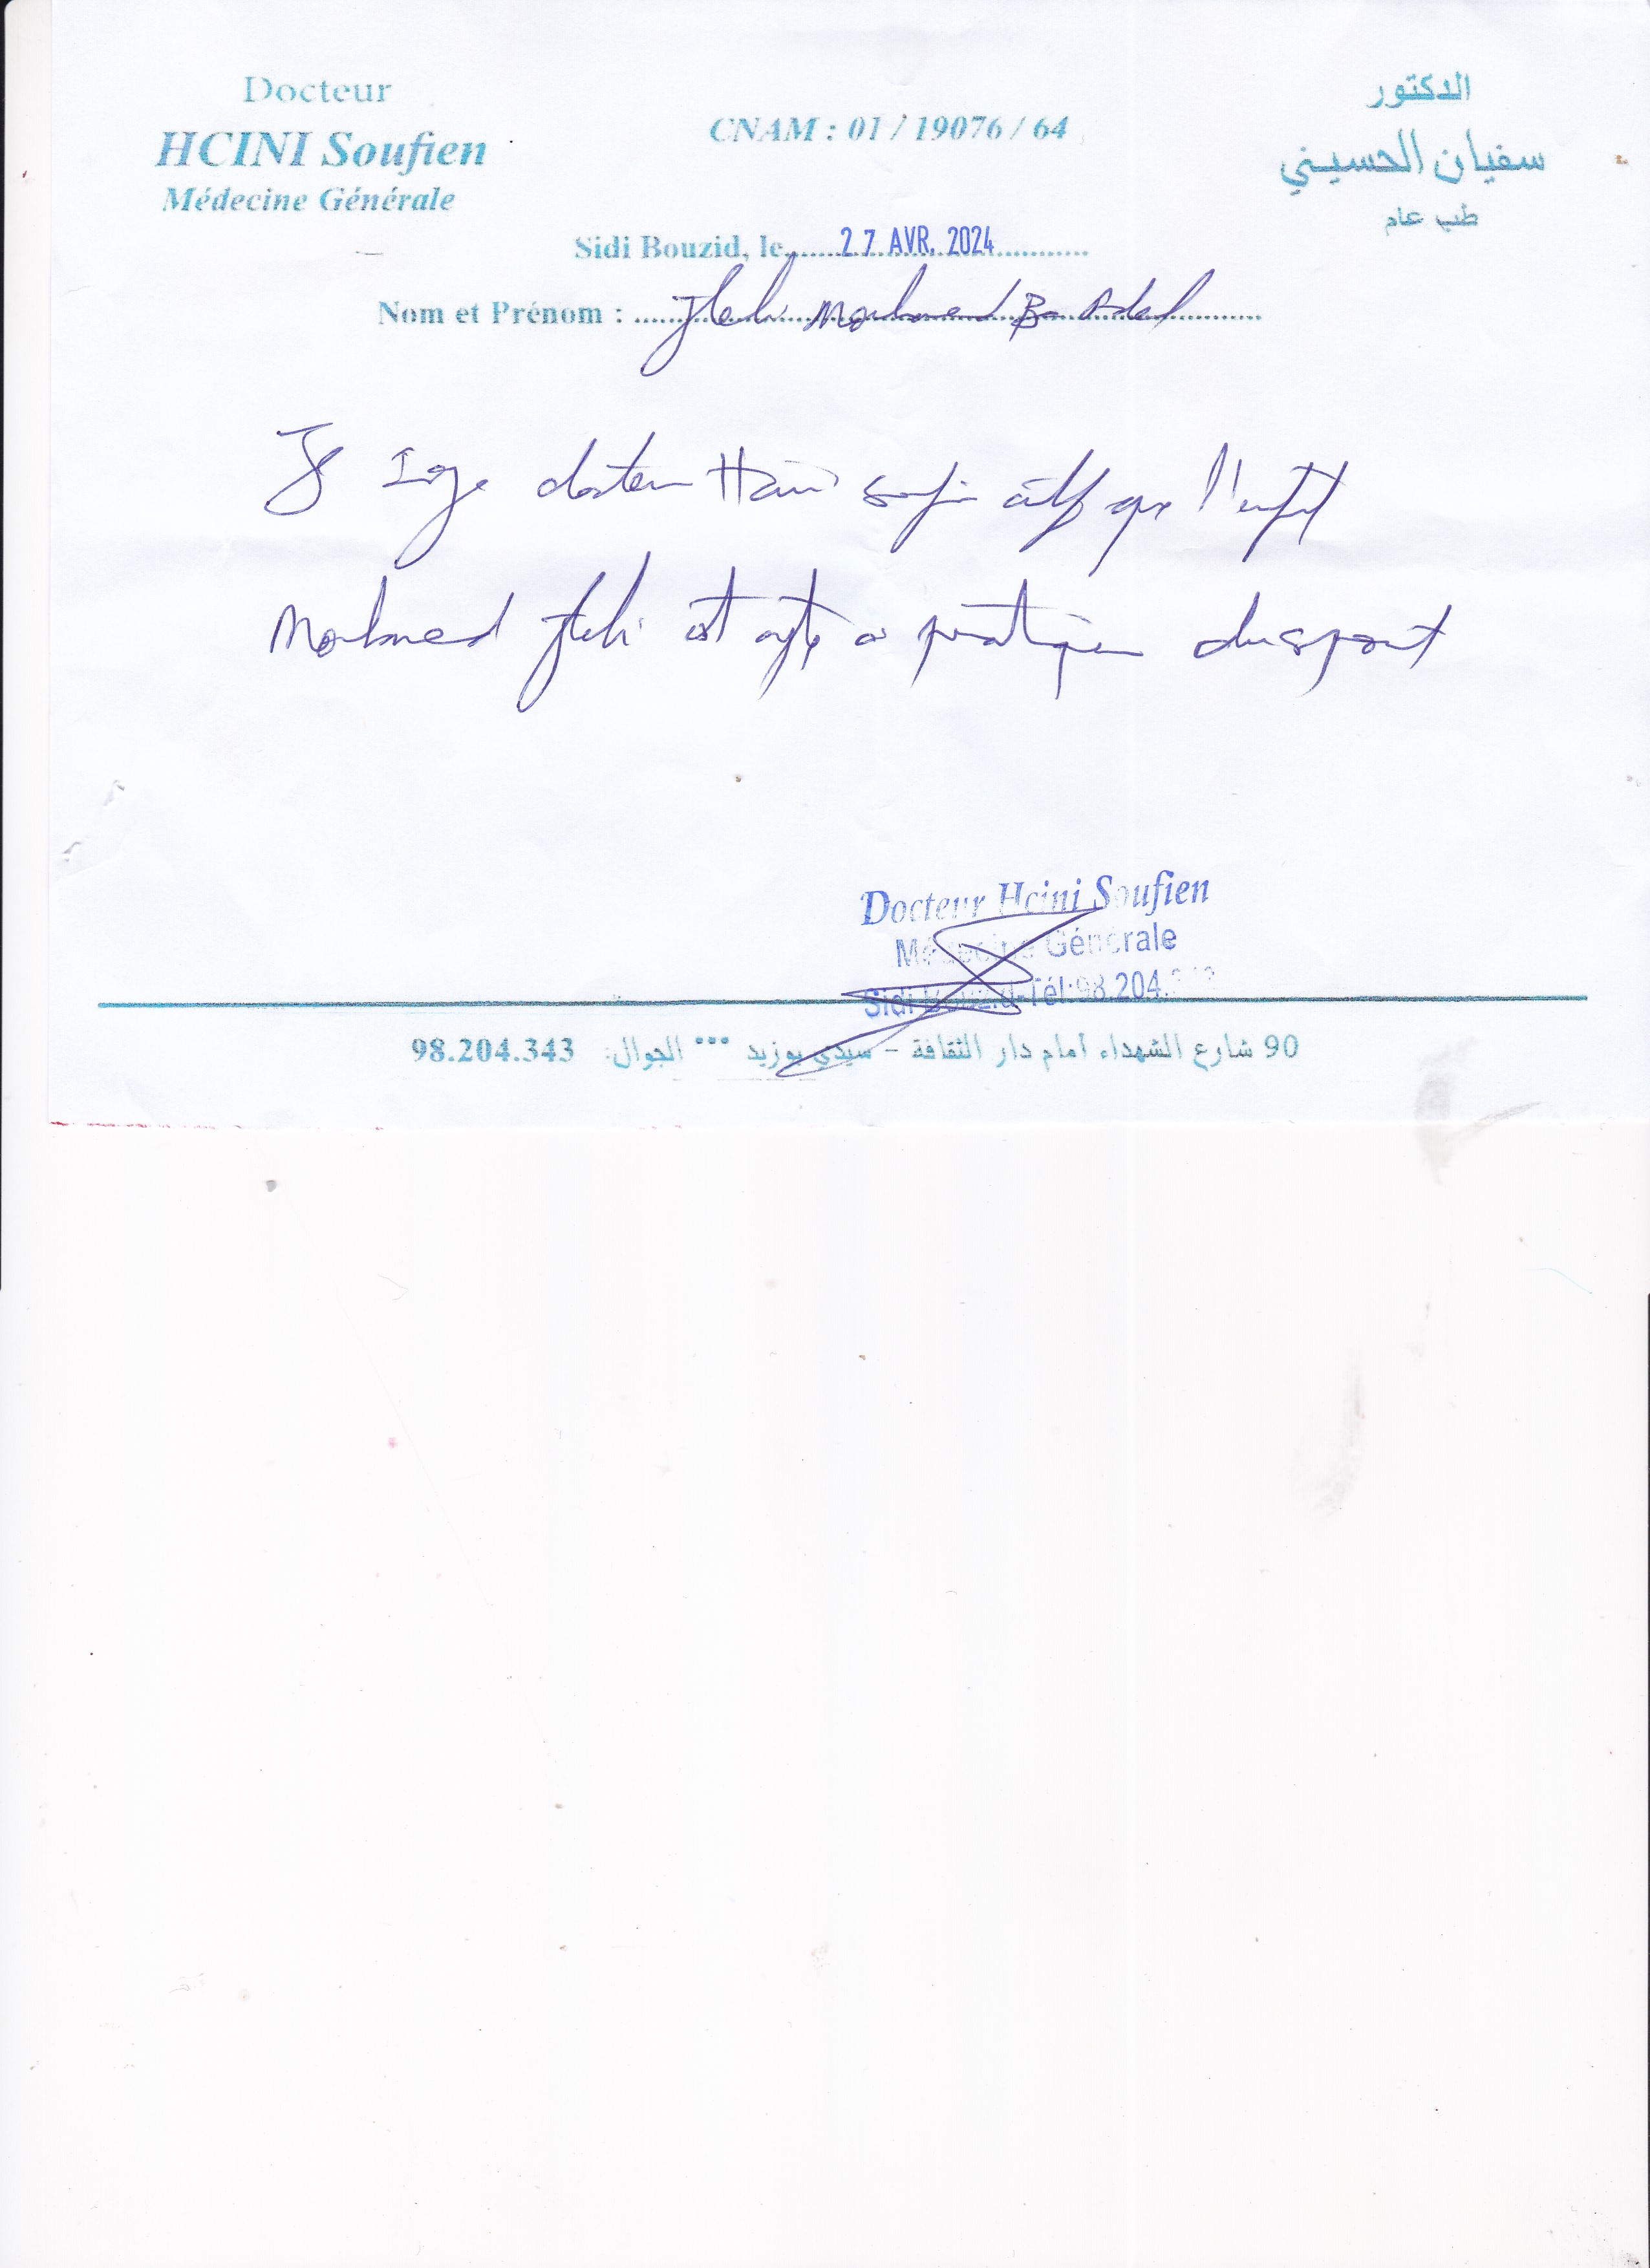 Docteur
HCINI Soufien
Médecine Générale
CNAM : 01 / 19076 / 64
الدكتور
سفيان الحسيني
طب عام
Sidi Bouzid, le 27 AVR. 2024
Nom et Prénom : Mohamed B Adel
docteur Hcini que l'enfant
Mohamed est apte a pratiquer du sport
Docteur Hcini Soufien
Médecine Générale
Sidi Bouzid-Tél:98.204.
90 شارع الشهداء أمام دار الثقافة - سيدي بوزيد *** الجوال: 98.204.343